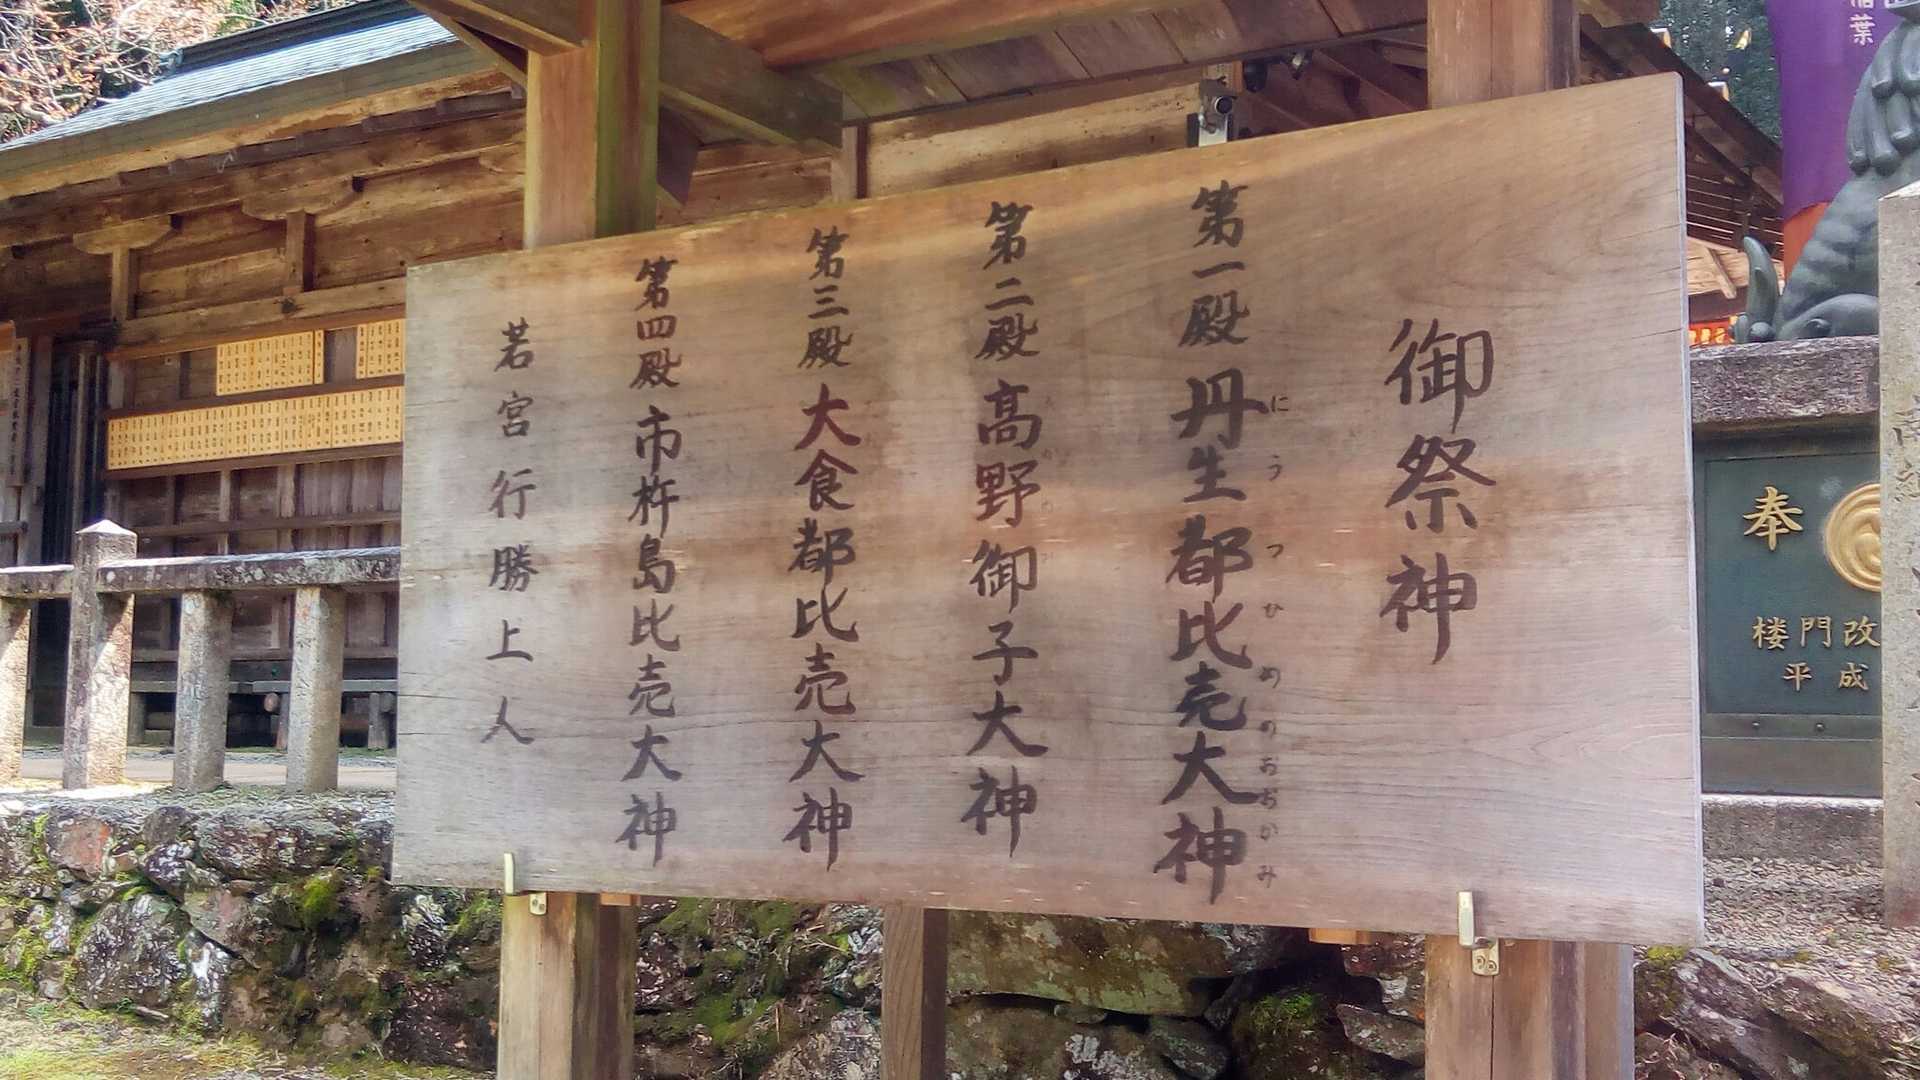 御祭神
第一殿 丹生都比売大神
にうつひめのおおかみ
第二殿 高野御子大神
第三殿 大食都比売大神
第四殿 市杵島比売大神
若宮 行勝上人
奉
楼門改
平成